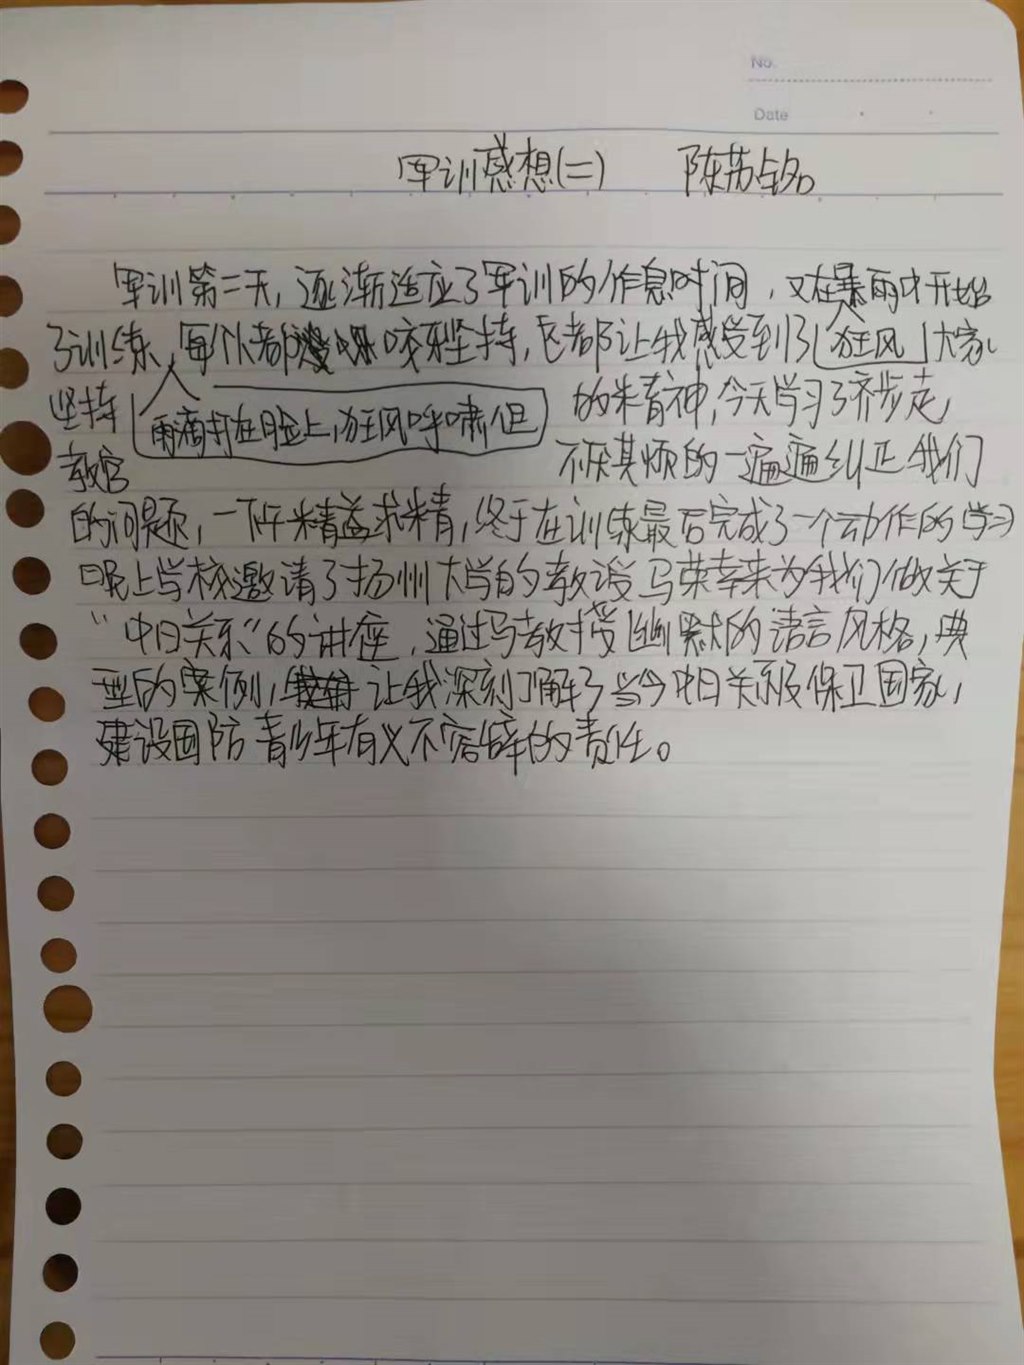 No.
Date
军训感想(二) 陈苏铭
军训第二天，逐渐适应了军训的作息时间，又在暴雨中开始
了训练，每个人都咬牙坚持，这都让我感受到了狂风大家
坚持 雨滴打在脸上，狂风呼啸，但 的精神，今天学习了齐步走，
教官 不厌其烦的一遍遍纠正我们
的问题，一下午精益求精，终于在训练最后完成了一个动作的学习
晚上学校邀请了扬州大学的教授马荣幸来为我们做关于
“中日关系”的讲座，通过马教授幽默的语言风格，典
型的案例，让我深刻了解了当今中日关系及保卫国家，
建设国防青少年有义不容辞的责任。